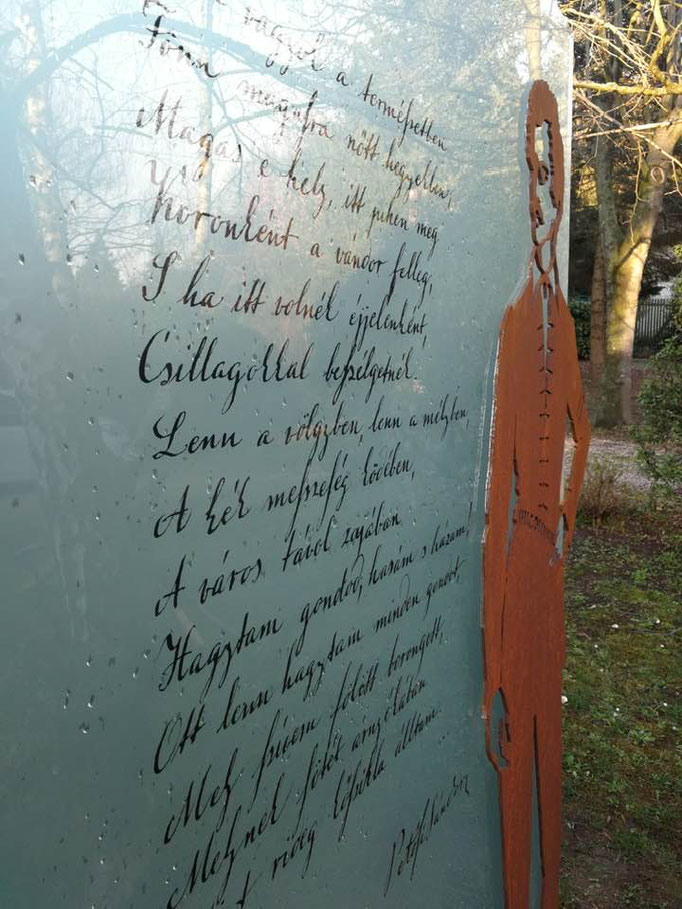 vagyok a természetben
Fönn magasra nőtt hegyekben,
Magas e hely, itt pihen meg
Koronként a vándor felleg,
S ha itt volnék éjjelenként,
Csillagokkal beszélgetnék.
Lenn a völgyben, lenn a mélyben,
A kék messzeség ködében,
A város távol zajában
Hagytam gondod, hazám s házam!
Ott lenn hagytam minden gondot,
Mely szívem fölött borongott,
Melynek sötét
rideg kősikla álltam.
Petőfi Sándor